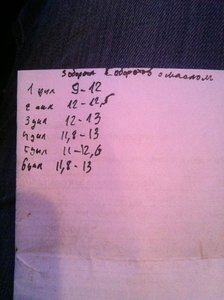 3 оборота 6 оборотов с маслом
1 цил 9-12
2 цил 12-12,5
3 цил 12-13
4 цил 11,8-13
5 цил 11-12,6
6 цил 11,8-13